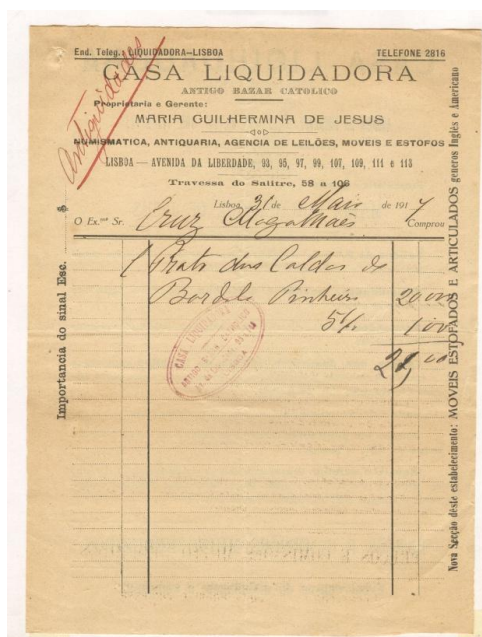 End. Teleg.: LIQUIDADORA—LISBOA
TELEFONE 2816
CASA LIQUIDADORA
ANTIGO BAZAR CATOLICO
Proprietaria e Gerente:
MARIA GUILHERMINA DE JESUS
NUMISMATICA, ANTIQUARIA, AGENCIA DE LEILÕES, MOVEIS E ESTOFOS
LISBOA — AVENIDA DA LIBERDADE, 93, 95, 97, 99, 107, 109, 111 e 113
Travessa do Salitre, 58 a 106
Antiguidades
Lisboa 31 de Maio de 1917
O Ex.mo Sr. Cruz Magalhaes Comprou
1 Prato das Caldas de
Bordalo Pinheiro 20 00
5% 1 00
21 00
CASA LIQUIDADORA
Importancia do sinal Esc. $
Nova Secção déste estabelecimento: MOVEIS ESTOFADOS E ARTICULADOS generos Inglês e Americano